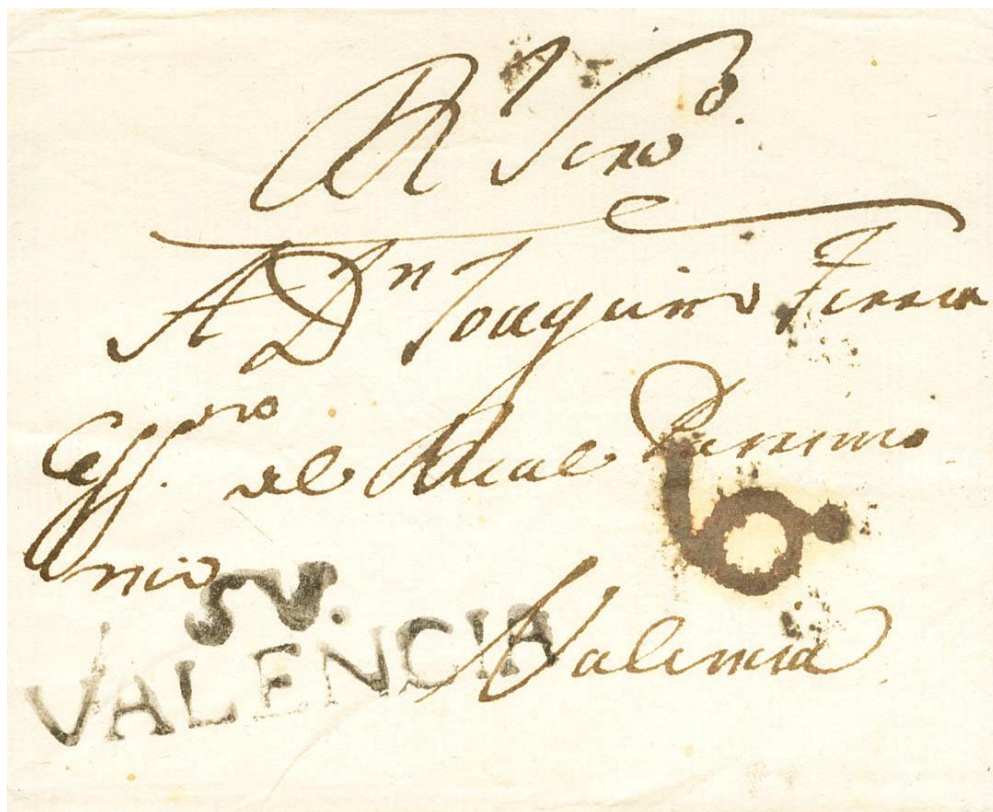 Rl Servo.
A Dn Joaquin Ferrer
Essno del Real Patrimo
nio
6.
SV.
VALENCIA
Valencia